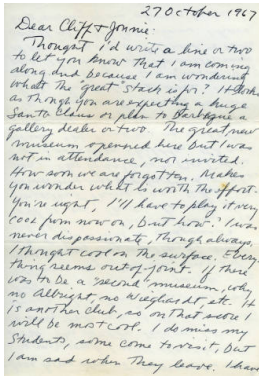 27 October 1967
Dear Cliff & Jonnie:
Thought I'd write a line or two
to let you know that I am coming
along and because I am wondering
what the "great" stack is for? It looks
as though you are expecting a huge
Santa Claus or plan to barbeque a
gallery dealer or two. The great new
museum opened here but I was
not in attendance, nor invited.
How soon we are forgotten. Makes
you wonder what is worth the effort.
You're right, I'll have to play it very
cool from now on, but how? I was
never dispassionate, though always,
I thought cool on the surface. Every-
thing seems out of joint. If there
was to be a "second" museum, why
no Albright, no Wieghardt, etc. It
is another club, so on that score I
will be most cool. I do miss my
students, some come to visit, but
I am sad when they leave. I have